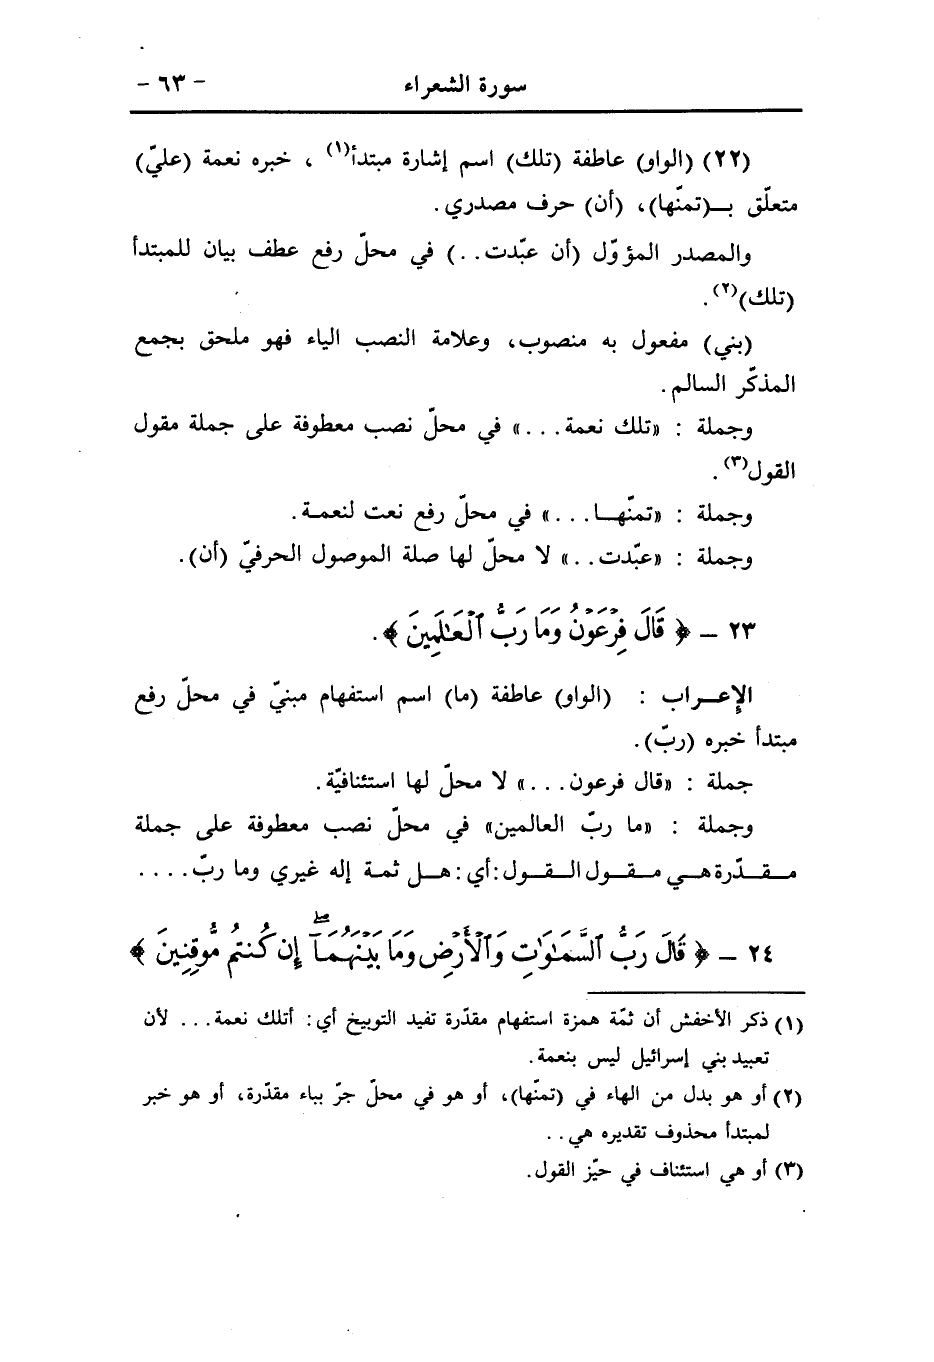 سورة الشعراء - ٦٣ -
(٢٢) (الواو) عاطفة (تلك) اسم إشارة مبتدأ(١) ، خبره نعمة (عليّ)
متعلّق بـ(تمنّها)، (أن) حرف مصدري.
والمصدر المؤوّل (أن عبّدت..) في محلّ رفع عطف بيان للمبتدأ
(تلك)(٢).
(بني) مفعول به منصوب، وعلامة النصب الياء فهو ملحق بجمع
المذكّر السالم.
وجملة : «تلك نعمة...» في محلّ نصب معطوفة على جملة مقول
القول(٣).
وجملة : «تمنّهـا...» في محلّ رفع نعت لنعمـة.
وجملة : «عبّدت...» لا محلّ لها صلة الموصول الحرفيّ (أن).
٢٣ - ﴿ قَالَ فِرْعَوْنُ وَمَا رَبُّ ٱلْعَـٰلَمِينَ ﴾.
الإعـراب : (الواو) عاطفة (ما) اسم استفهام مبنيّ في محلّ رفع
مبتدأ خبره (ربّ).
جملة : «قال فرعون...» لا محلّ لها استئنافيّة.
وجملة : «ما ربّ العالمين» في محلّ نصب معطوفة على جملة
مـقـدّرة هـي مـقـول الـقـول: أي: هـل ثمـة إله غيري وما ربّ....
٢٤ - ﴿ قَالَ رَبُّ ٱلسَّمَـٰوَٰتِ وَٱلْأَرْضِ وَمَا بَيْنَهُمَآ ۖ إِن كُنتُم مُّوقِنِينَ ﴾
(١) ذكر الأخفش أن ثمّة همزة استفهام مقدّرة تفيد التوبيخ أي: أتلك نعمة... لأن
تعبيد بني إسرائيل ليس بنعمة.
(٢) أو هو بدل من الهاء في (تمنّها)، أو هو في محلّ جرّ بباء مقدّرة، أو هو خبر
لمبتدأ محذوف تقديره هي..
(٣) أو هي استئناف في حيّز القول.